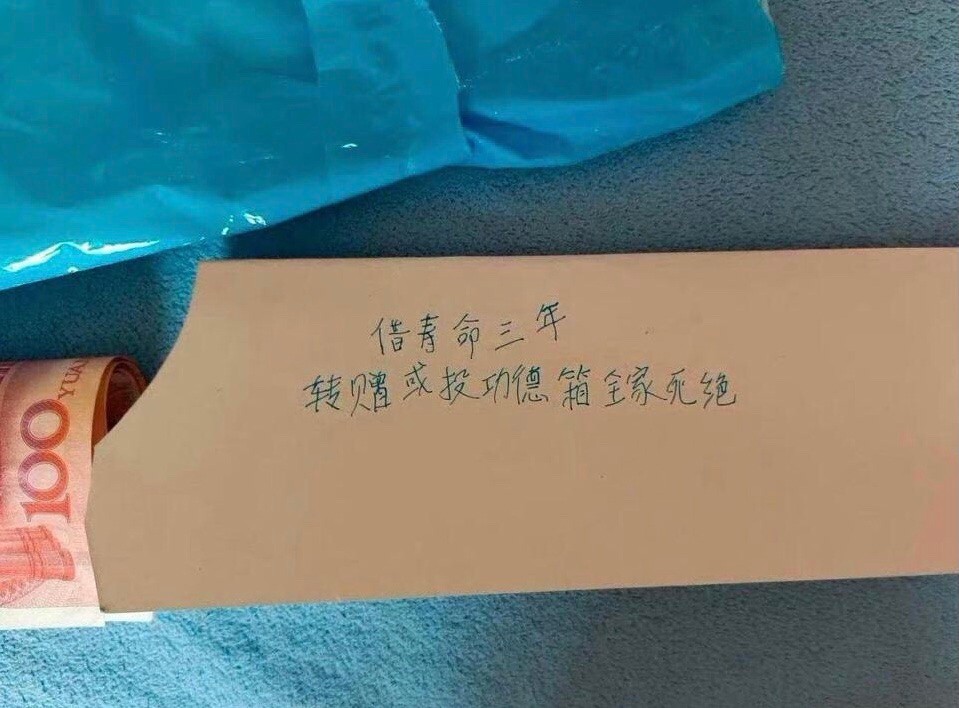 借寿命三年
转赠或投功德箱全家死绝
100 YUAN